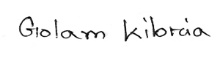 Golam Kibria